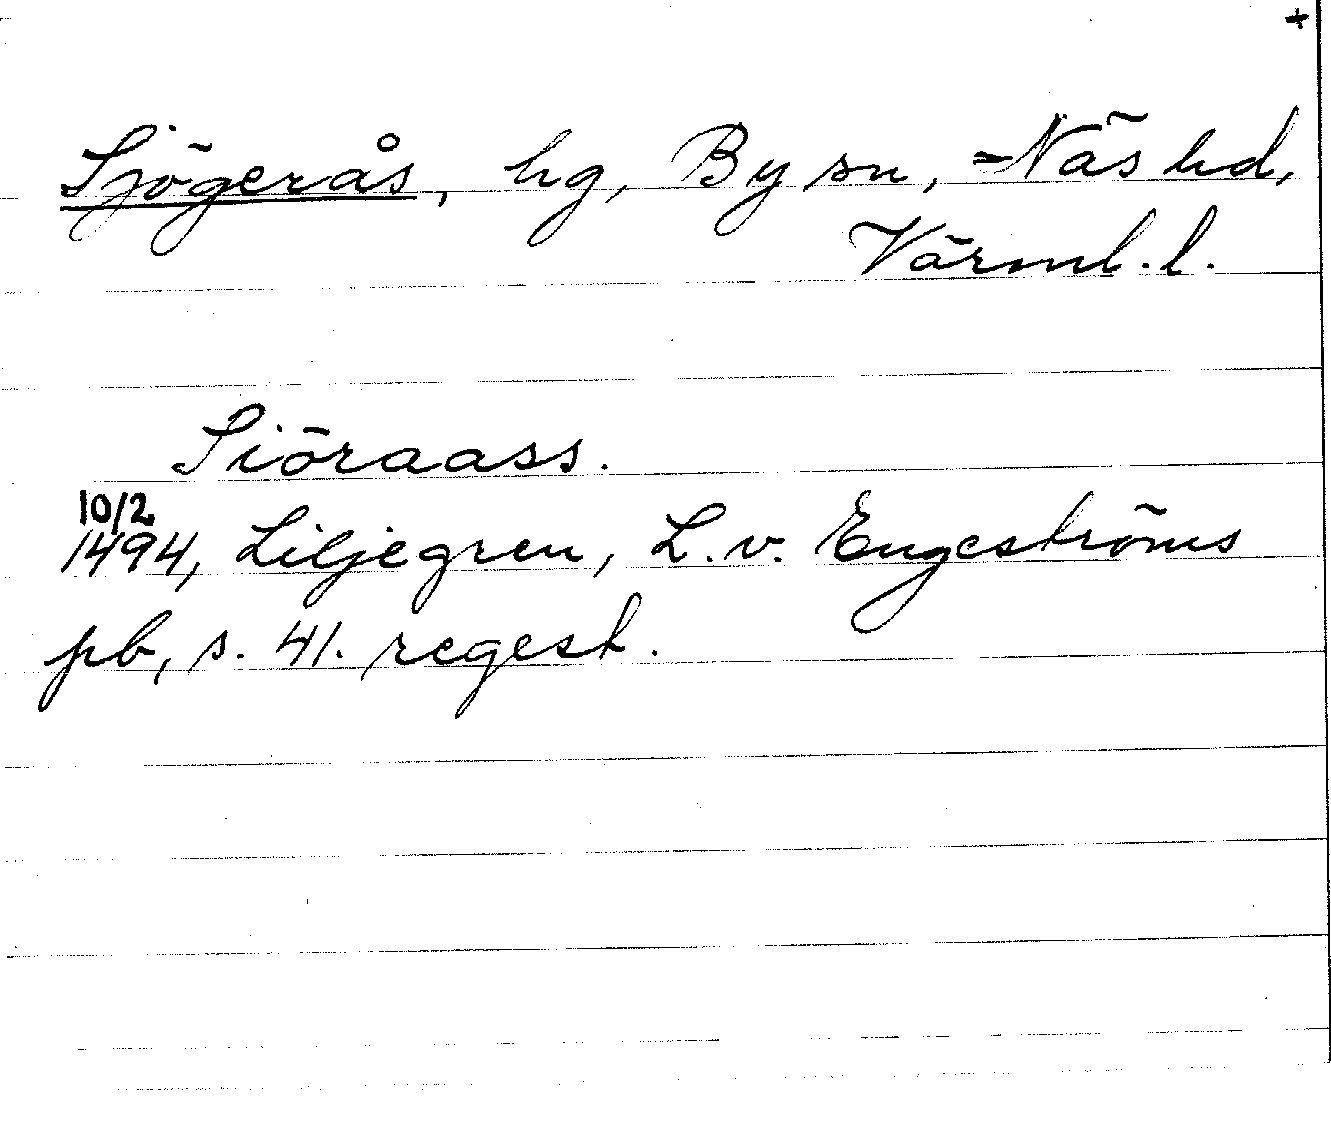 +
Sjögerås, hg, By sn, Näs hd,
Värml. l.
Siöraass.
10/2
1494, Liljegren, L. v. Engeströms
pb, s. 41. regest.